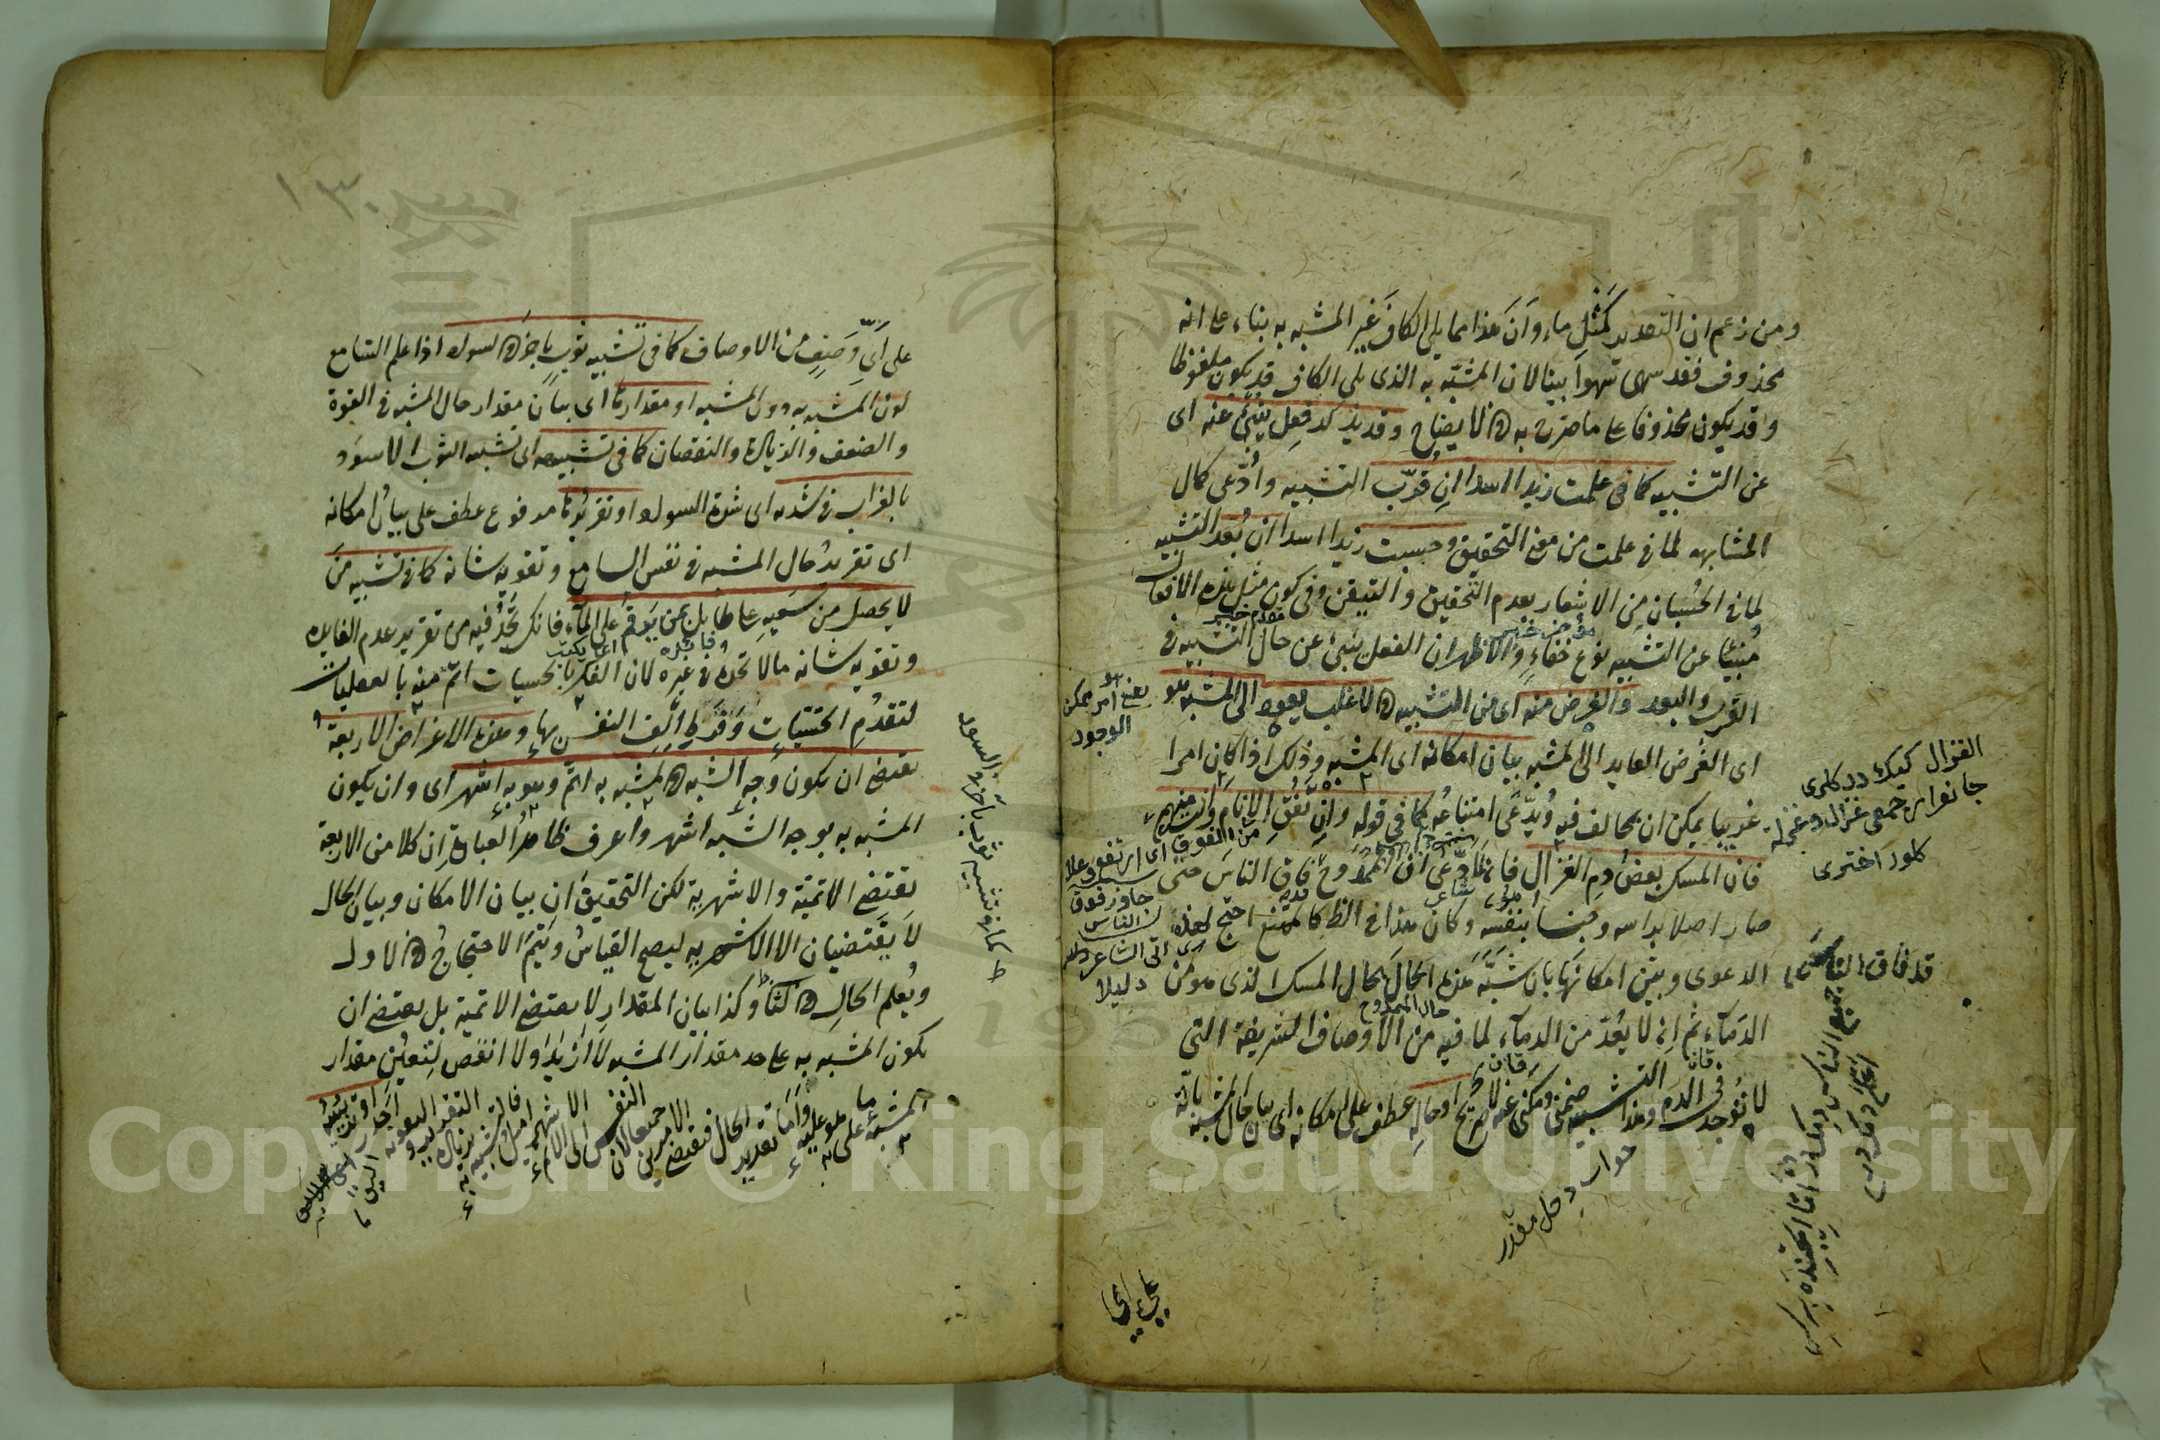 ومن زعم ان التقدير كمثل ماء وان هذا مما يلي الكاف غير المشبه به بناء على انه
محذوف فقد سهى سهوا بينا لان المشبه به الذي يلي الكاف قد يكون ملفوظا
وقد يكون محذوفا على ما صرح به في الايضاح وقد يذكر فعل ينبئ عنه اى
عن التشبيه كما في علمت زيدا اسدا ان قرب التشبيه وادعى كمال
المشابهه لما في علمت من معنى التحقيق وحسبت زيدا اسدا ان بعد التشبيه
لما في الحسبان من الاشعار بعدم التحقيق والتيقن وفي كون مثل هذه الافعال
مقدم خبر
منبئا عن التشبيه نوع خفاء والاظهر ان الفعل ينبئ عن حال التشبيه في
القرب والبعد والغرض منه اى من التشبيه في الاغلب يعود الى المشبه وهو
اى الغرض العايد الى المشبه بيان امكانه اى المشبه وذلك اذا كان امرا
غريبا يمكن ان يخالف فيه ويدعى امتناعه كما في قوله وان تفق الانام وانت منهم
فان المسك بعض دم الغزال فانه لما ادعى ان الممدوح فاق الناس حتى
صار اصلا براسه وجنسا بنفسه وكان هذا في الظ كالممتنع احتج لهذه
الدعوى وبين امكانها بان شبه هذه الحال بحال المسك الذي هو من
حال الممدوح
الدماء ثم انه لا يعد من الدماء لما فيه من الاوصاف الشريفة التي
لا توجد في الدم وهذا التشبيه ضمني ومكني عنه لا صريح او حاله عطف على امكانه اى بيان حال المشبه بانه
جواب دخل مقدر
على اى
يعني امر ممكن
الوجود
من الفوق
دليلا
الغزال كيك در كلرى
جانوران جمعى غزال و غزلة
كلور اخترى
قد فاق الناس
على اى وصف من الاوصاف كما في تشبيه ثوب باخر في السواد اذا علم السامع
لون المشبه به دون المشبه او مقدارها اى بيان مقدار حال المشبه في القوة
والضعف والزيادة والنقصان كما في تشبيهه اى تشبيه الثوب الاسود
بالغراب في شدته اى شدة السواد او تقريرها مرفوع عطف على بيان امكانه
اى تقرير حال المشبه في نفس السامع وتقوية شانه كما في تشبيه من
لا يحصل من سعيه على طايل بمن يرقم على الماء فانك تجد فيه من تقرير عدم الفايده
اى يكتب
وتقوية شانه ما لا تجده في غيره لان الفكر بالحسيات اتم منه بالعقليات
لتقدم الحسيات وفرط الف النفس بها وهذه الاغراض الاربعة
تقتضي ان يكون وجه الشبه في المشبه به اتم وهو به اشهر اى وان يكون
المشبه به بوجه الشبه اشهر واعرف ظاهر العبارة ان كلا من الاربعة
تقتضي الاتمية والاشهرية لكن التحقيق ان بيان الامكان وبيان الحال
لا يقتضيان الا الاشهرية ليصح القياس ويتم الاحتجاج في الاول
ويعلم الحال في الثاني وكذا بيان المقدار لا يقتضي الاتمية بل يقتضي ان
يكون المشبه به على حد مقدار المشبه لا ازيد ولا انقص لتعين مقدار
المشبه على ما هو عليه واما تقرير الحال فيقتضي الامرين لان النفس الى الاتم الاشهر اميل فالتشبيه به بزيادة التقرير والتقوية اجدر او تزيينه
كما في تشبيه ثوب باخر في السواد